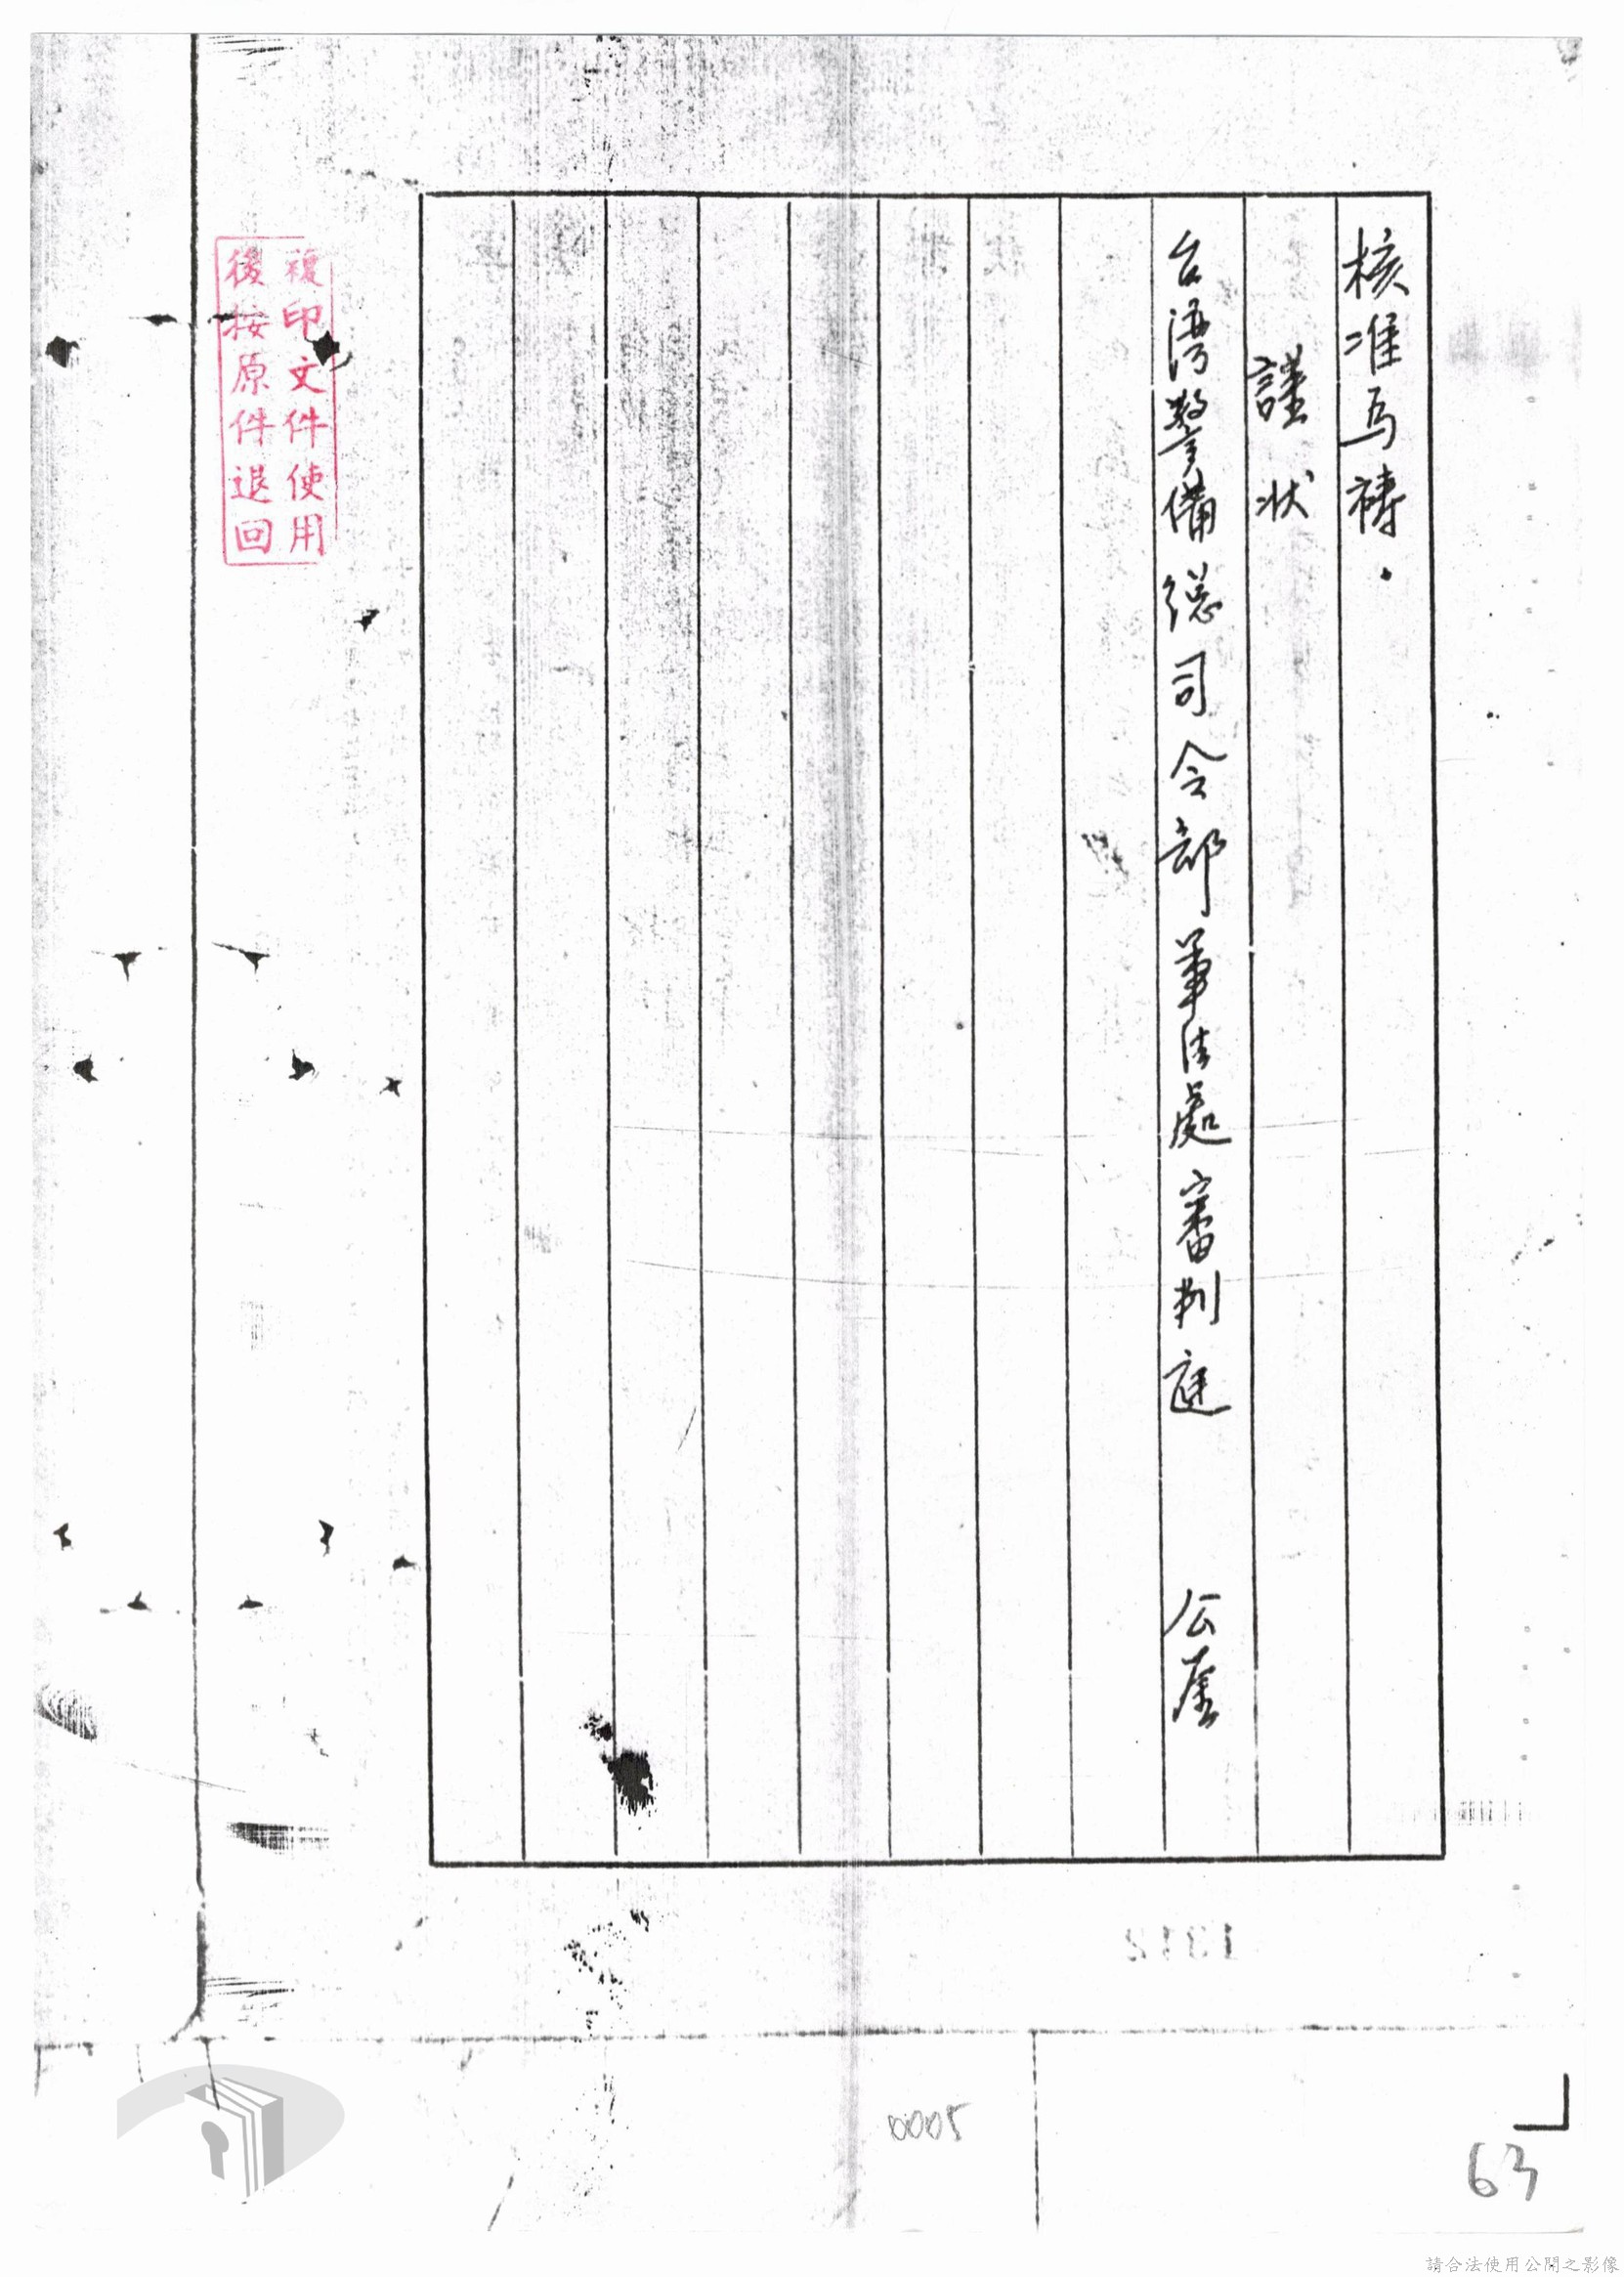 核准為禱．
謹狀
台湾警備總司令部軍法處審判庭　公鑒
複印文件使用
後按原件退回
1312
0005
63
請合法使用公開之影像